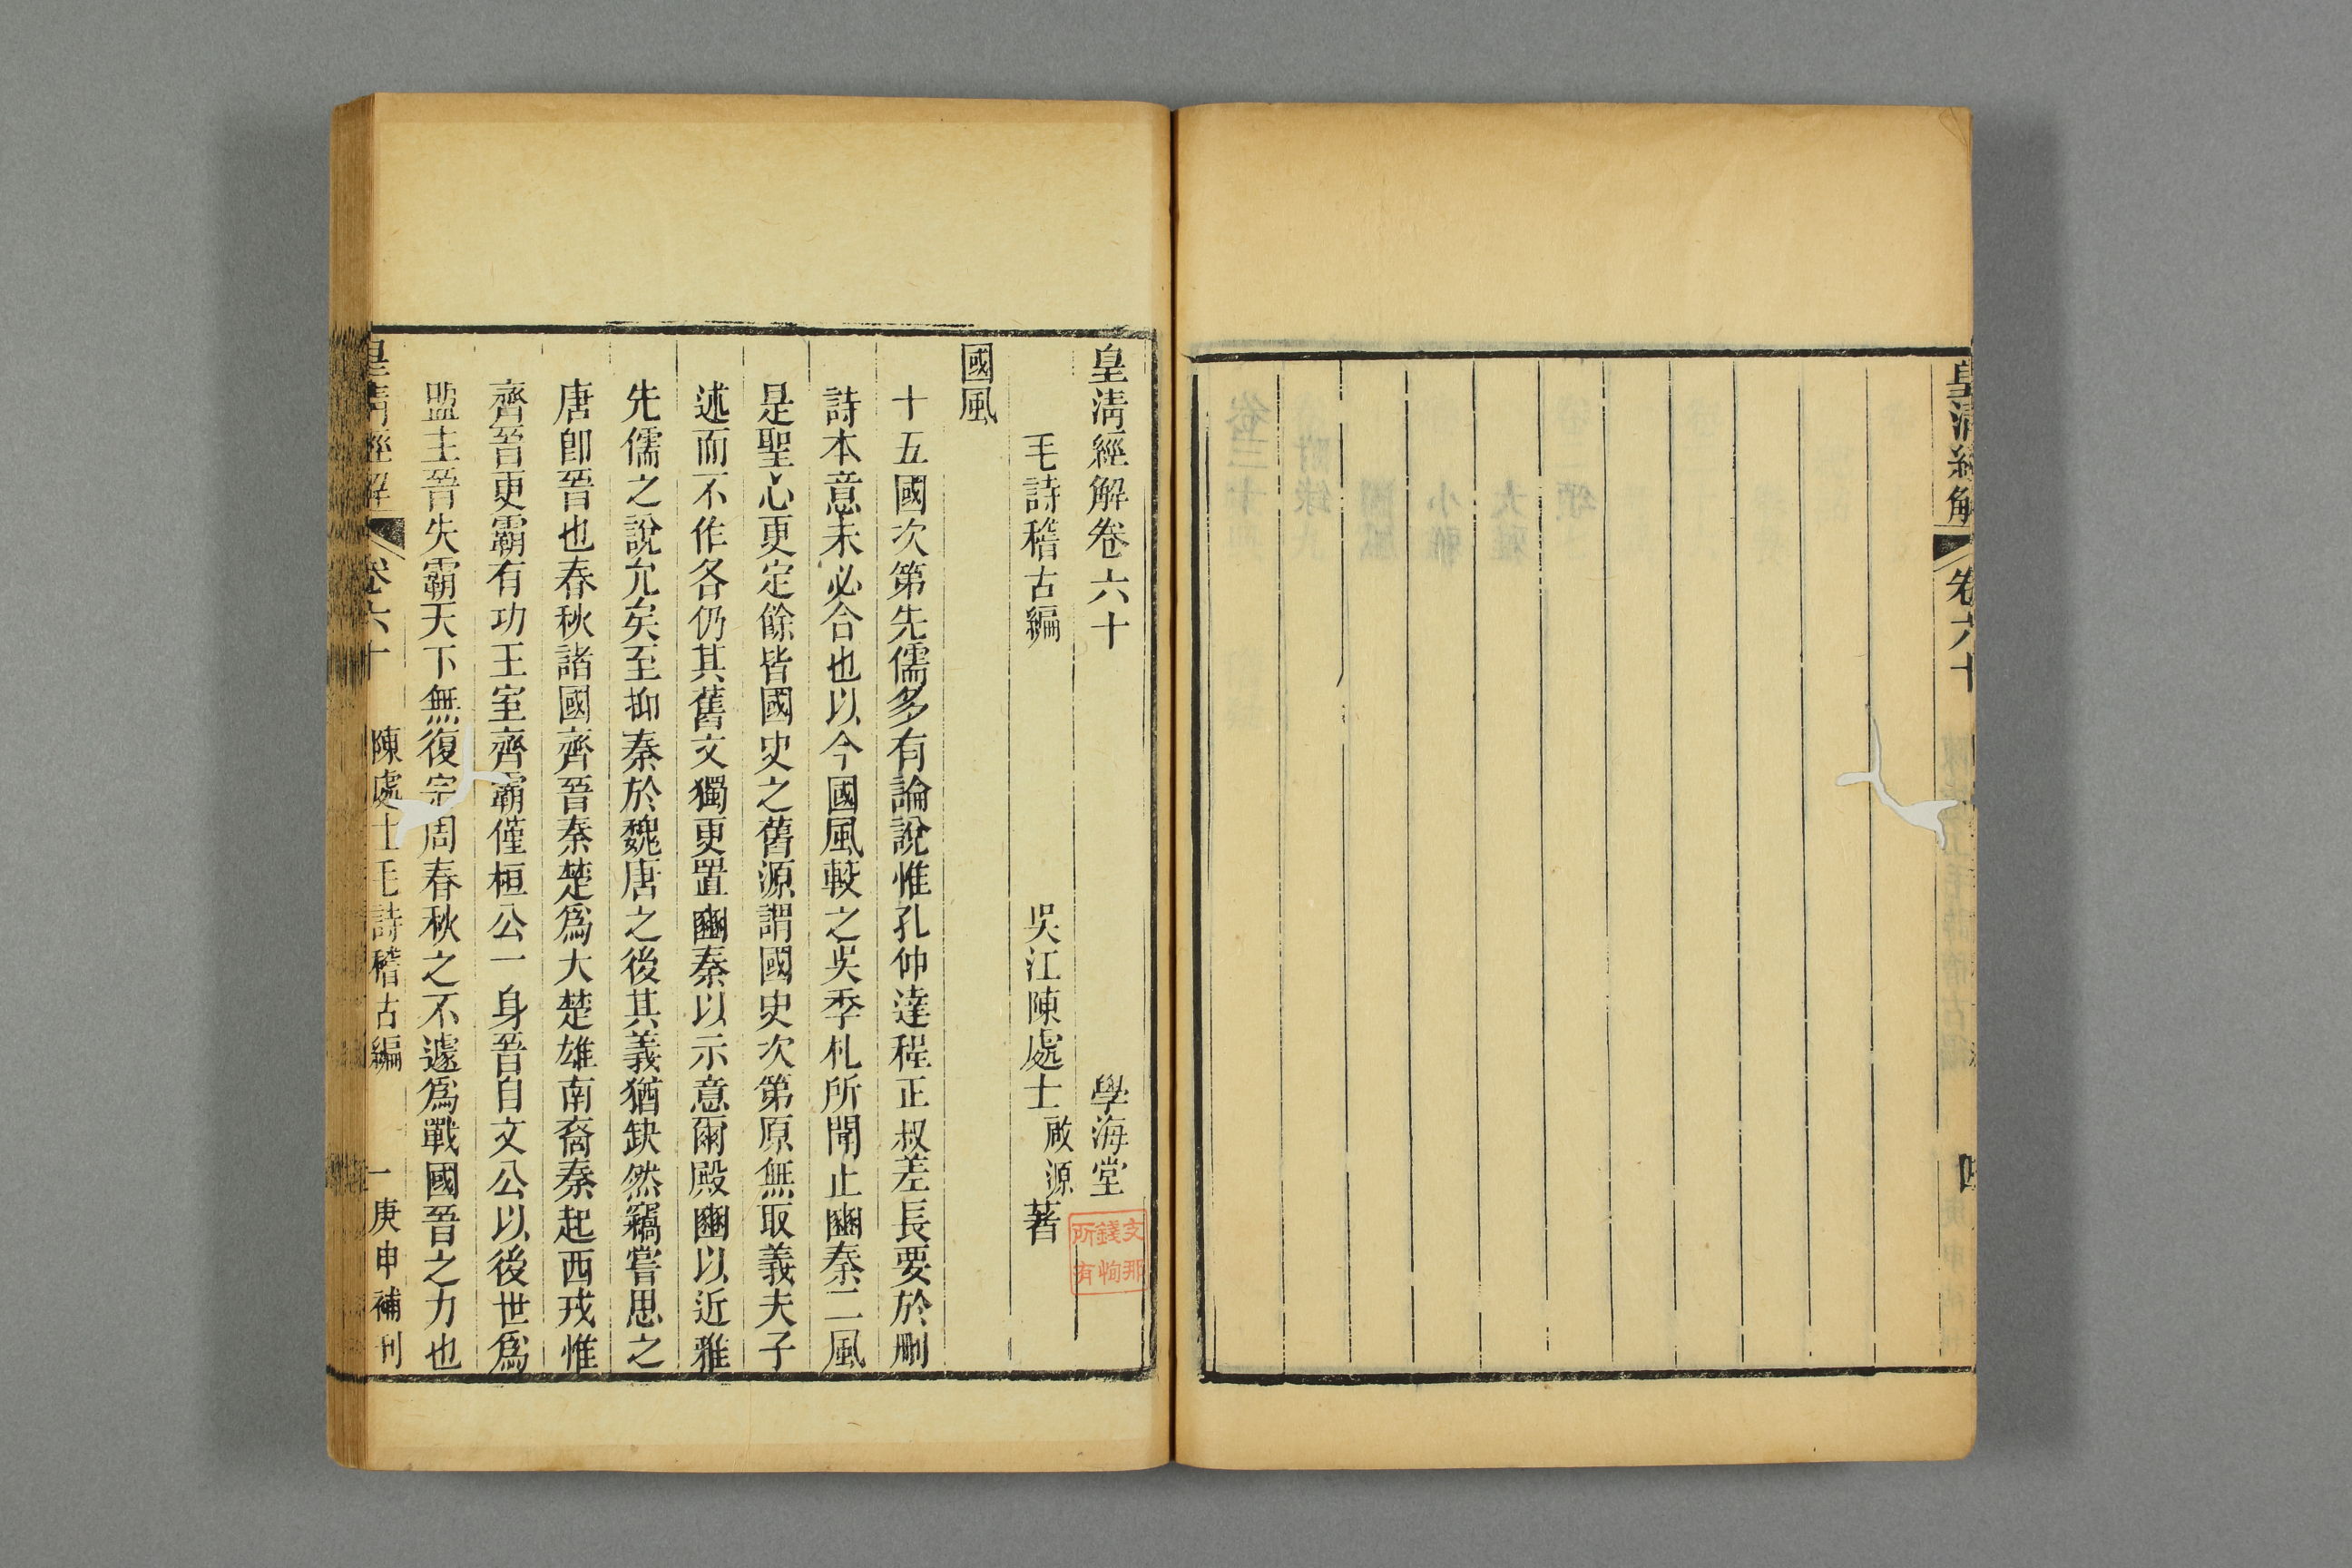 皇清經解 卷六十
皇清經解卷六十 學海堂
毛詩稽古編 吳江陳處士啟源著
國風
十五國次第先儒多有論說惟孔仲達程正叔差長要於刪
詩本意未必合也以今國風較之吳季札所聞止豳秦二風
是聖心更定餘皆國史之舊源謂國史次第原無取義夫子
述而不作各仍其舊文獨更置豳秦以示意爾殿豳以近雅
先儒之說允矣至抑秦於魏唐之後其義猶缺然竊嘗思之
唐卽晉也春秋諸國齊晉秦楚爲大楚雄南裔秦起西戎惟
齊晉更霸有功王室齊霸僅桓公一身晉自文公以後世爲
盟主晉失霸天下無復宗周春秋之不遽爲戰國晉之力也
皇清經解 卷六十 陳處士毛詩稽古編 一 庚申補刊